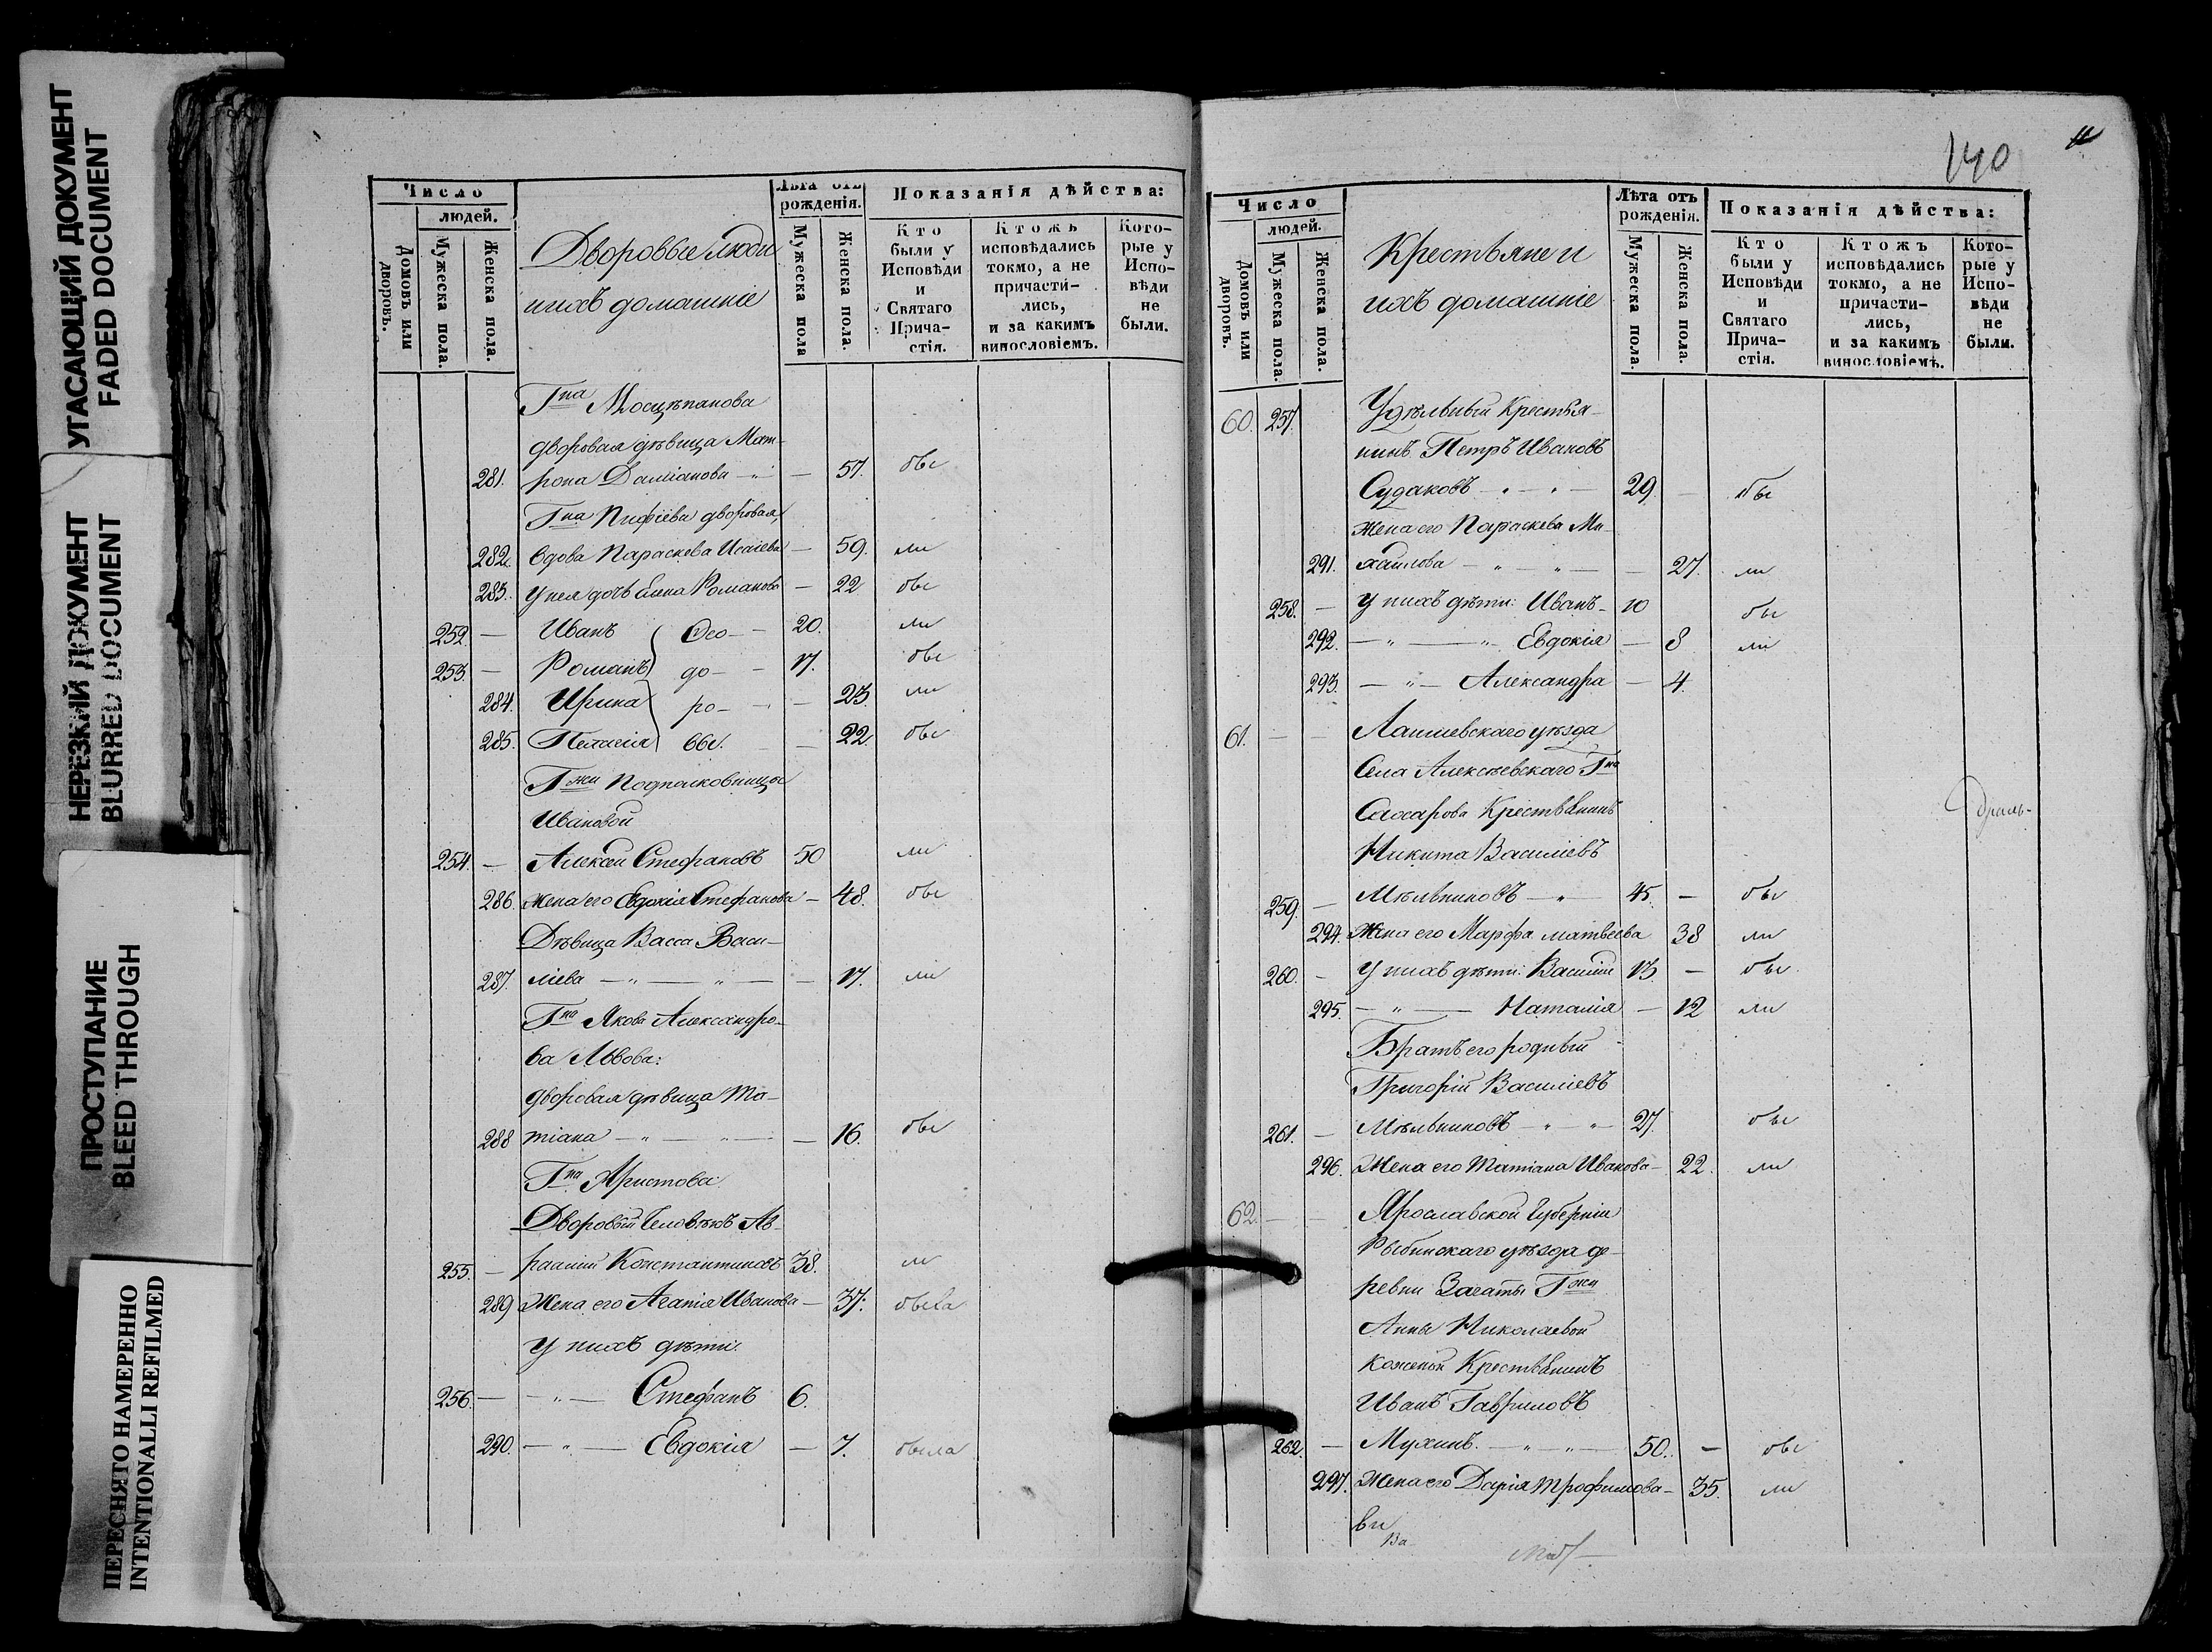 УГАСАЮЩИЙ ДОКУМЕНТ
FADED DOCUMENT
НЕРЕЗКИЙ ДОКУМЕНТ
BLURRED DOCUMENT
ПРОСТУПАНИЕ
BLEED THROUGH
ПЕРЕСНЯТО НАМЕРЕННО
INTENTIONALLI REFILMED
Число
людей.
Домовъ или дворовъ.
Мужеска пола.
Женска пола.
Дворовые люди
и ихъ домашніе
Лѣта отъ
рожденія.
Мужеска пола
Женска пола.
Показанія дѣйства:
Кто
были у
Исповѣди
и
Святаго
Прича-
стія.
Ктожъ
исповѣдались
токмо, а не
причасти-
лись,
и за какимъ
винословіемъ.
Кото-
рые у
Испо-
вѣди
не
были.
Гна
дворовая дѣвица Мат-
281. рона Даміанова — — 57. бы
Гна дворовая,
282. вдова Параскева Исаіева — 59. ли
283. У нея дочь Анна Романова — 22 бы
252. — Иванъ Ѳео- — 20. ли
253. — Романъ до- — 17. бы
284. Ирина ро- — 23 ли
285. Пелагія вы. — 22. бы
Гжи Подполковницы
Ивановой
254. — Алексѣй Стефановъ 50 ли
286. жена его Евдокія Стефанова — 48. бы
Дѣвица Васса Васи-
287. ліева — „ — „ — — 17. ли
Гна Якова Александро-
ва Львова:
дворовая дѣвица Та-
288 тіана — „ — „ — — 16. бы
Гна Аристова
Дворовый Человѣкъ Ав-
255. — раамій Константиновъ 38. ли
289 Жена его Агапія Иванова — 37. была
У нихъ дѣти.
256. — — „ — Стефанъ 6.
290. — „ — Евдокія — 7. была
140
Число
людей.
Домовъ или дворовъ.
Мужеска пола.
Женска пола.
Крестьяне и
ихъ домашніе
Лѣта отъ
рожденія.
Мужеска пола.
Женска пола.
Показанія дѣйства:
Кто
были у
Исповѣди
и
Святаго
Прича-
стія.
Ктожъ
исповѣдались
токмо, а не
причасти-
лись,
и за какимъ
винословіемъ.
Кото-
рые у
Испо-
вѣди
не
были.
60. 257. Удѣльный Крестья-
нинъ Петръ Ивановъ
Судаковъ — „ — „ — 29. — бы
жена его Параскева Ми-
291. хайлова — „ — „ — — 27. ли
258. — У нихъ дѣти: Иванъ — 10 бы
292. — „ — „ Евдокія — 8 ли
293. — „ — Александра — 4.
61. — — Лаишевскаго уѣзда
Села Алексѣевскаго Гна
Сахарова Крестьянинъ
Никита Василіевъ
259. — Мѣльниковъ — „ — 45. — бы
294. Жена его Марфа матвеева 38 ли
260. — У нихъ дѣти: Василій 13. — бы.
295. — „ — Наталія — 12 ли
Братъ его родный
Григорій Василіевъ
261. — Мѣльниковъ — „ — „ — 27. бы
296. Жена его Татіана Иванова — 22. ли
62. — — Ярославской Губерніи
Рыбинскаго уѣзда де-
ревни Гжи
Анны Николаевой
Крестьянинъ
Иванъ Гавриловъ
262. — Мухинъ. — „ — „ — 50. — бы
297. Жена его Дарія Трофимова — 35. ли